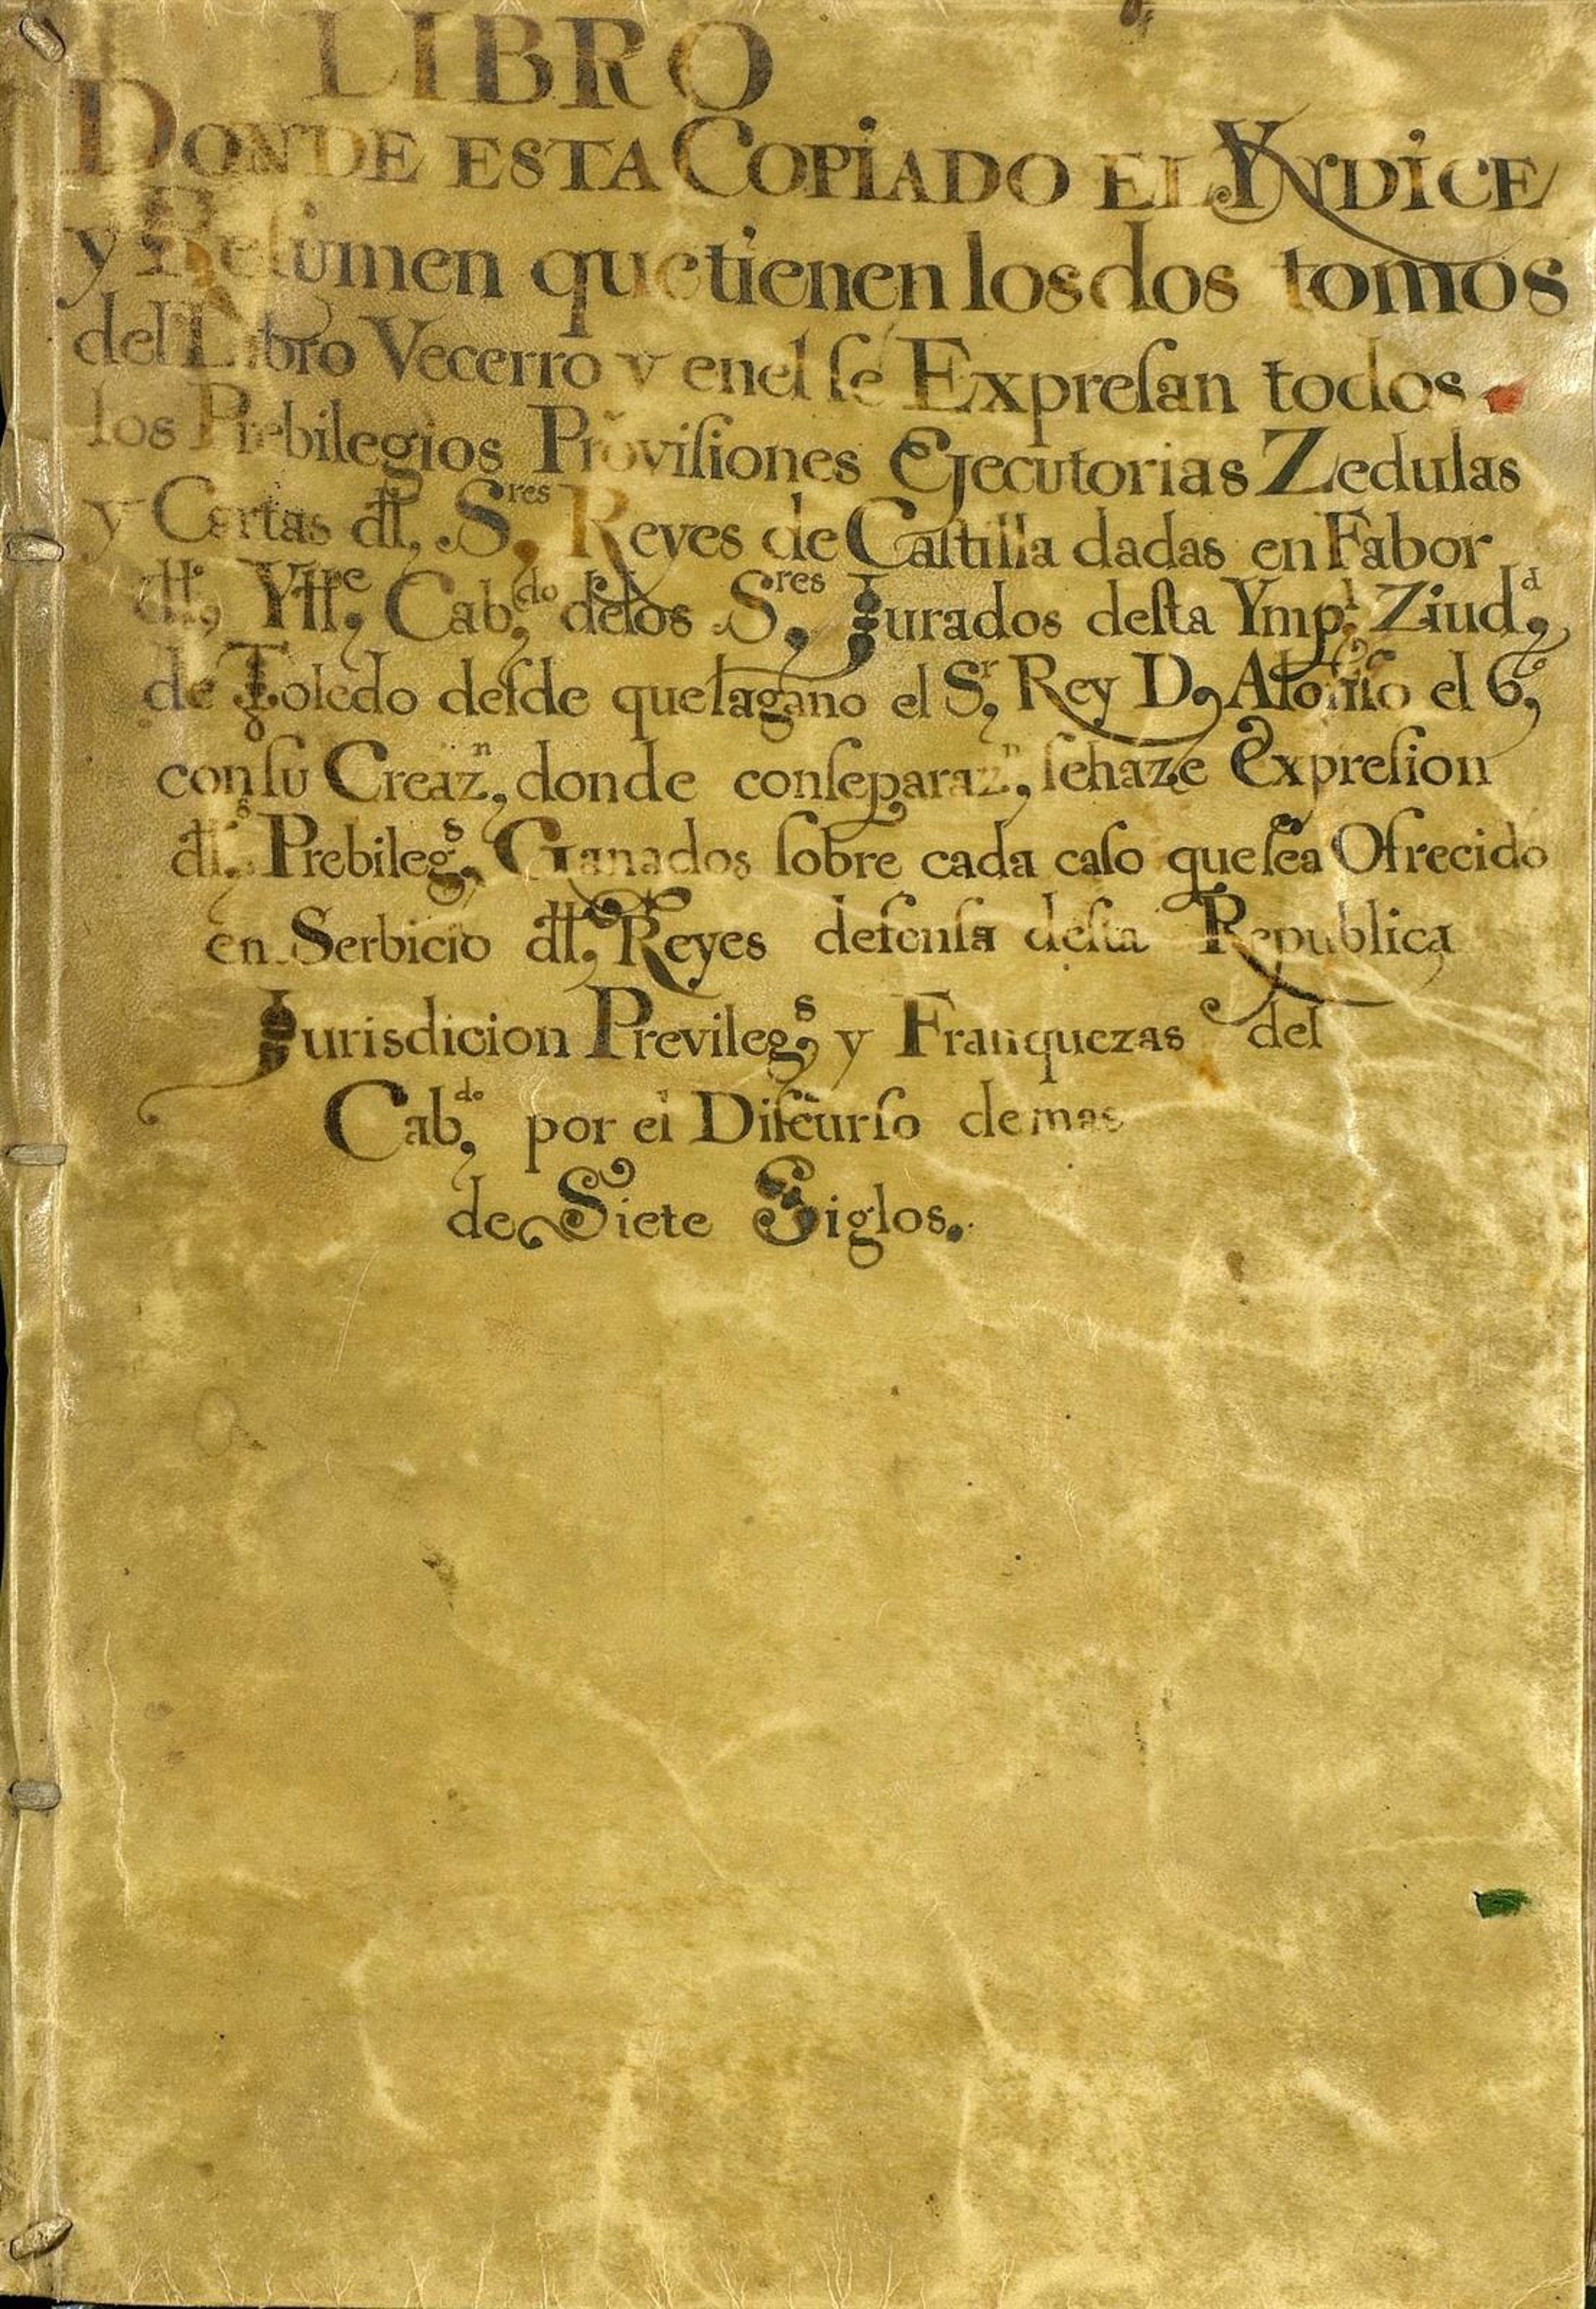 LIBRO
DONDE ESTA COPIADO EL YNDICE
y Reſumen que tienen los dos tomos
del Libro Vecerro y enel ſe Expreſan todos
los Prebilegios Proviſiones Ejecutorias Zedulas
y Cartas dll, S.res Reyes de Caſtilla dadas en Fabor
dll.º, Yll.e Cab.do delos S.res Jurados deſta Ymp.l Ziud.d,
de Toledo deſde que lagano el S.r Rey D. Alonſo el 6.º,
conſu Creaz.n, donde conſeparaz.n, ſehaze Expreſion
dll.s Prebileg.s, Ganados ſobre cada caſo que ſea Ofrecido
en Serbicio dll. Reyes defenſa deſta Republica
Jurisdicion Previleg.s y Franquezas del
Cab.do por el Diſcurſo de mas
de Siete Siglos.